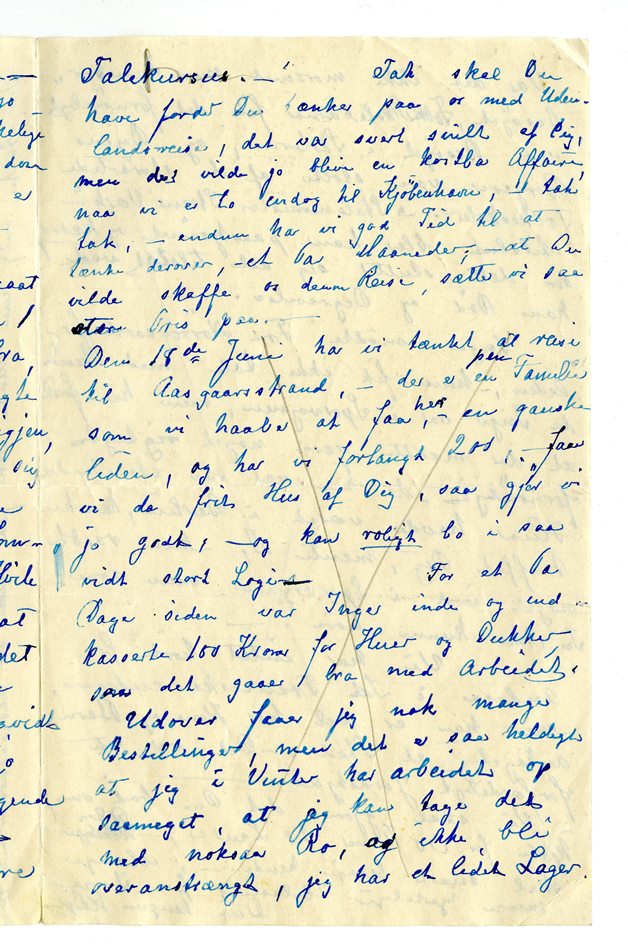 Talekursus. –' Tak skal Du
have fordi Du tænker paa os med Uden-
landsreise, det va svert snilt af Dig,
men det vilde jo blive en kostba Affaire
naa vi er to endog til Kjöbenhavn, – tak'
tak, – endnu har vi god Tid til at
tænke derover, – et Pa Maaneder, – at Du
vilde skaffe os denne Reise, sætte vi saa
stor Pris paa. –
Den 18de Juni har vi tænkt at reise
til Aasgaarsstrand, – der er en pen Familie
som vi haabe at faa her, – en ganske
liden, og har vi forlangt 200, – faar
vi da frit Hus af Dig, saa gjør vi
jo godt, – og kan roligt bo i saa
vidt stort Logis – For et Pa
Dage siden var Inger inde og ind-
kasserte 100 Kroner for Huer og Dukker,
saa det gaaer bra med Arbeidet.
Udover faaer jeg nok mange
Bestillinger, men det e saa heldigt
at jeg i Vinter har arbeidet op
saameget, at jeg kan tage det
med noksaa Ro, og ikke bli
overanstrængt, jeg har et lidet Lager.